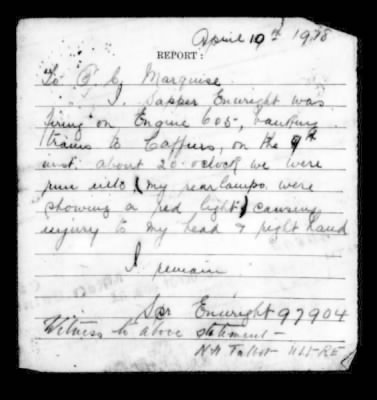 April 10th 1918
REPORT:
To O C Marquise
I, Sapper Enwright was
firing on Engine 605, banking
trains to Caffiers, on the 9th
inst. about 20 oclock we were
run into (my rear lamps were
showing a red light) causing
injury to my head & right hand
I remain
Spr Enwright 97904
Witness to above statement -
Talbot RE